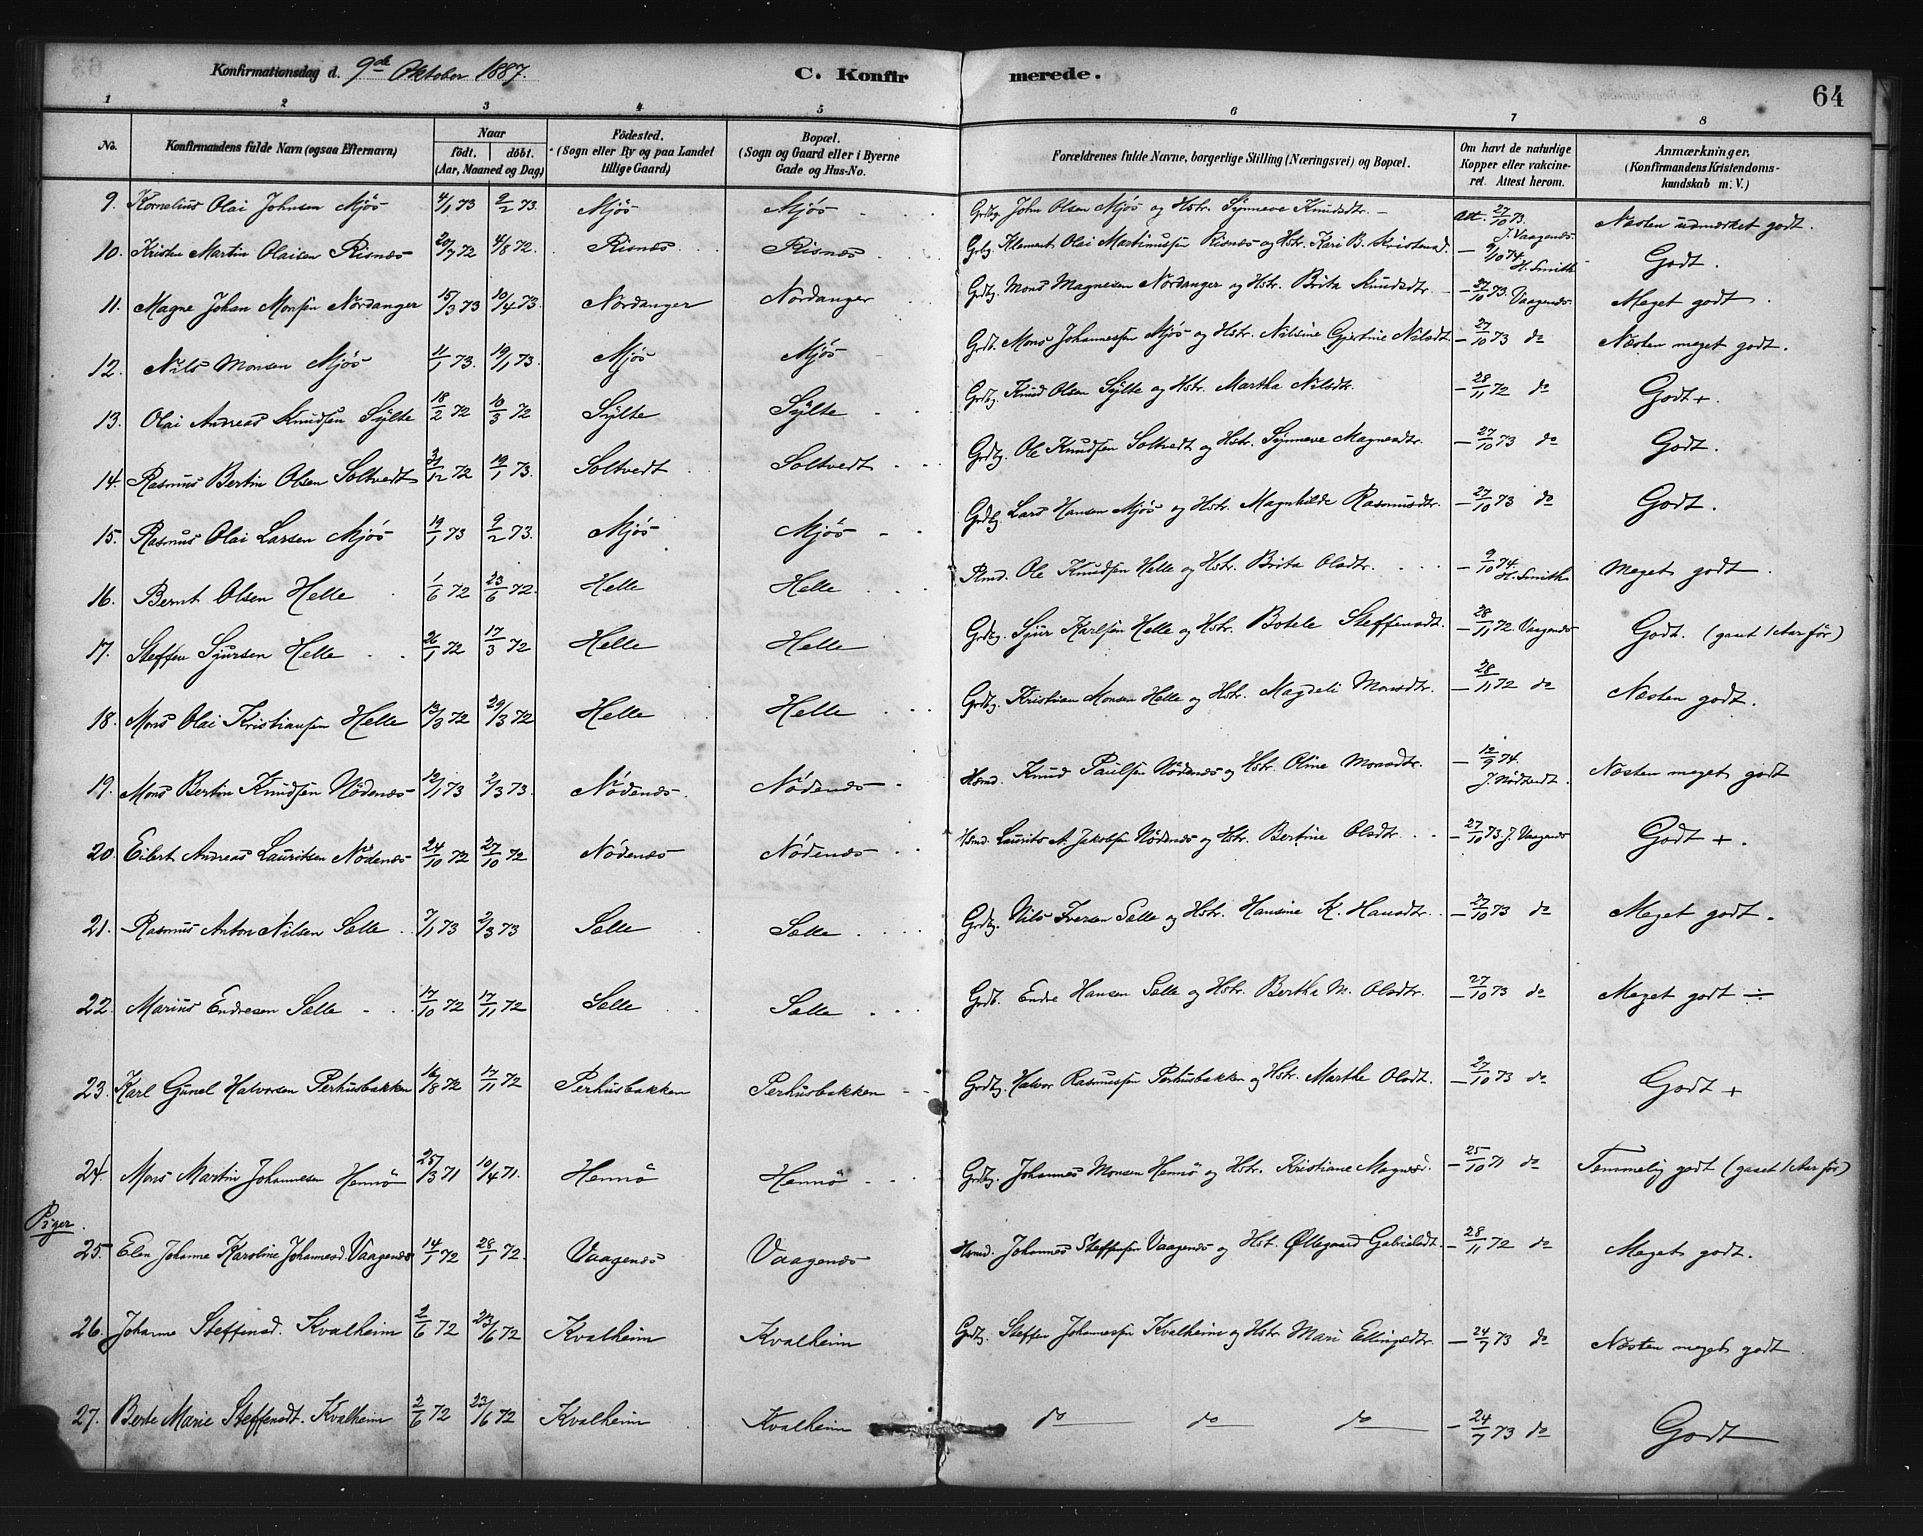 Konfirmationsdag d. 9de Oktober 1887. C. Konfirmerede. 64
1 2 3 4 5 6 7 8
No. Konfirmandens fulde Navn (ogsaa Efternavn) Naar födt. döbt. (Aar, Maaned og Dag) Födested. (Sogn eller By og paa Landet tillige Gaard) Bopæl. (Sogn og Gaard eller i Byerne Gade og Hus-No. Forældrenes fulde Navne, borgerlige Stilling (Næringsvei) og Bopæl. Om havt de naturlige Kopper eller vakcineret. Attest herom. Anmærkninger. (Konfirmandens Kristendomskundskab m. V.)
9. Kornelius Olai Johnsen Mjös 4/1 73 9/2 73. Mjös Mjös Grdbg. John Olsen Mjös og Hstr. Synneve Knudsdtr. att. 27/10 73. J. Vaagenes Næsten udmærket godt.
10. Kristen Martin Olaisen Risnes 20/7 72 4/8 72. Risnes Risnes Grbg. Klement Olai Martinussen Risnes og Hstr. Kari B. Kristensd. – 9/10 74. H. Smith Godt.
11. Magne Johan Monsen Nordanger 15/3 73 10/4 73. Nordanger Nordanger Grdbg. Mons Magnesen Nordanger og Hstr. Brita Knudsdtr. – 27/10 73. Vaagenes Meget godt.
12. Nils Monsen Mjös 4/1 73. 19/1 73. Mjös Mjös Grdb. Mons Johannessen Mjös og Hstr. Nilsine Gjertine Nilsdt. – 27/10 73 do Næsten meget godt.
13. Olai Andreas Knudsen Sylte 18/2 72 10/3 72 Sylte Sylte Grdbg. Knud Olsen Sylte og Hstr. Martha Nilsdtr. – 28/11 72 do Godt +.
14. Rasmus Bertin Olsen Soltvedt 31/12 72 19/1 73. Soltvedt Soltvedt Grdbg. Ole Knudsen Soltvedt og Hstr. Synneve Magnesdtr. – 27/10 73 do Godt.
15. Rasmus Olai Larsen Mjös 19/1 73 9/2 73. Mjös Mjös Grdbg. Lars Hansen Mjös og Hstr. Magnhilde Rasmusdtr. – 27/10 73 do Godt.
16. Bernt Olsen Helle 1/6 72 23/6 72. Helle Helle Ole Knudsen Helle og Hstr. Brita Olsdtr. – 9/10 74. H. Smith Meget godt.
17. Steffen Sjursen Helle 26/1 72 17/3 72 Helle Helle Grdbg. Sjur Karlsen Helle og Hstr. Botele Steffensdt. – 28/11 72 Vaagenes Godt. (gaaet 1 Aar för)
18. Mons Olai Kristiansen Helle 13/3 72 29/3 72 Helle Helle Grdbg. Kristian Monsen Helle og Hstr. Magdeli Monsdtr. – 28/11 72 do Næsten godt.
19. Mons Bertin Knudsen Nödenes 12/1 73 2/3 73. Nödenes Nödenes Hsmd. Knud Paulsen Nödenes og Hstr. Oline Monsdtr. – 12/9 74. Næsten meget godt
20. Eilert Andreas Lauritsen Nödenes 24/10 72 27/10 72 Nödenes Nödenes Hsmd. Laurits A. Jakobsen Nödenes og Hstr. Bertine Olsdtr. – 27/10 73. J. Vaagenes Godt +.
21. Rasmus Anton Nilsen Sælle 7/1 73 2/3 73 Sælle Sælle Grdbg. Nils Iversen Sælle og Hstr. Hansine K. Hansdtr. – 27/10 73 do Meget godt.
22. Marius Endresen Sælle 17/10 72 17/11 72 Sælle Sælle Grdb. Endre Hansen Sælle og Hstr. Bertha M. Olsdtr. – 27/10 73 do Meget godt ÷
23. Karl Gunel Halvorsen Perhusbakken 16/8 72 17/11 72 Perhusbakken Perhusbakken Grdbg. Halvor Rasmussen Perhusbakken og Hstr. Marthe Olsdt. – 27/10 73 do Godt +
24. Mons Martin Johannesen Hennö 25/3 71 10/4 71. Hennö Hennö Grdbg. Johannes Monsen Hennö og Hstr. Kristiane Magnesd. – 25/10 71 do Temmelig godt (gaaet 1 Aar för)
Piger.
25. Elen Johanne Karoline Johannesd. Vaagenes 14/1 72 28/1 72. Vaagenes Vaagenes Hsmd. Johannes Steffensen Vaagenes og Hst. Øllegaard Gabrielsdt. – 28/11 72 do Meget godt.
26. Johanne Steffensd. Kvalheim 2/6 72 23/6 72 Kvalheim Kvalheim Grdbg. Steffen Johannessen Kvalheim og Hstr. Mari Ellingsdtr. – 24/7 73 do Næsten meget godt
27. Berte Marie Steffensdt. Kvalheim 2/6 72 23/6 72 Kvalheim Kvalheim do do do – 24/7 73 do Godt